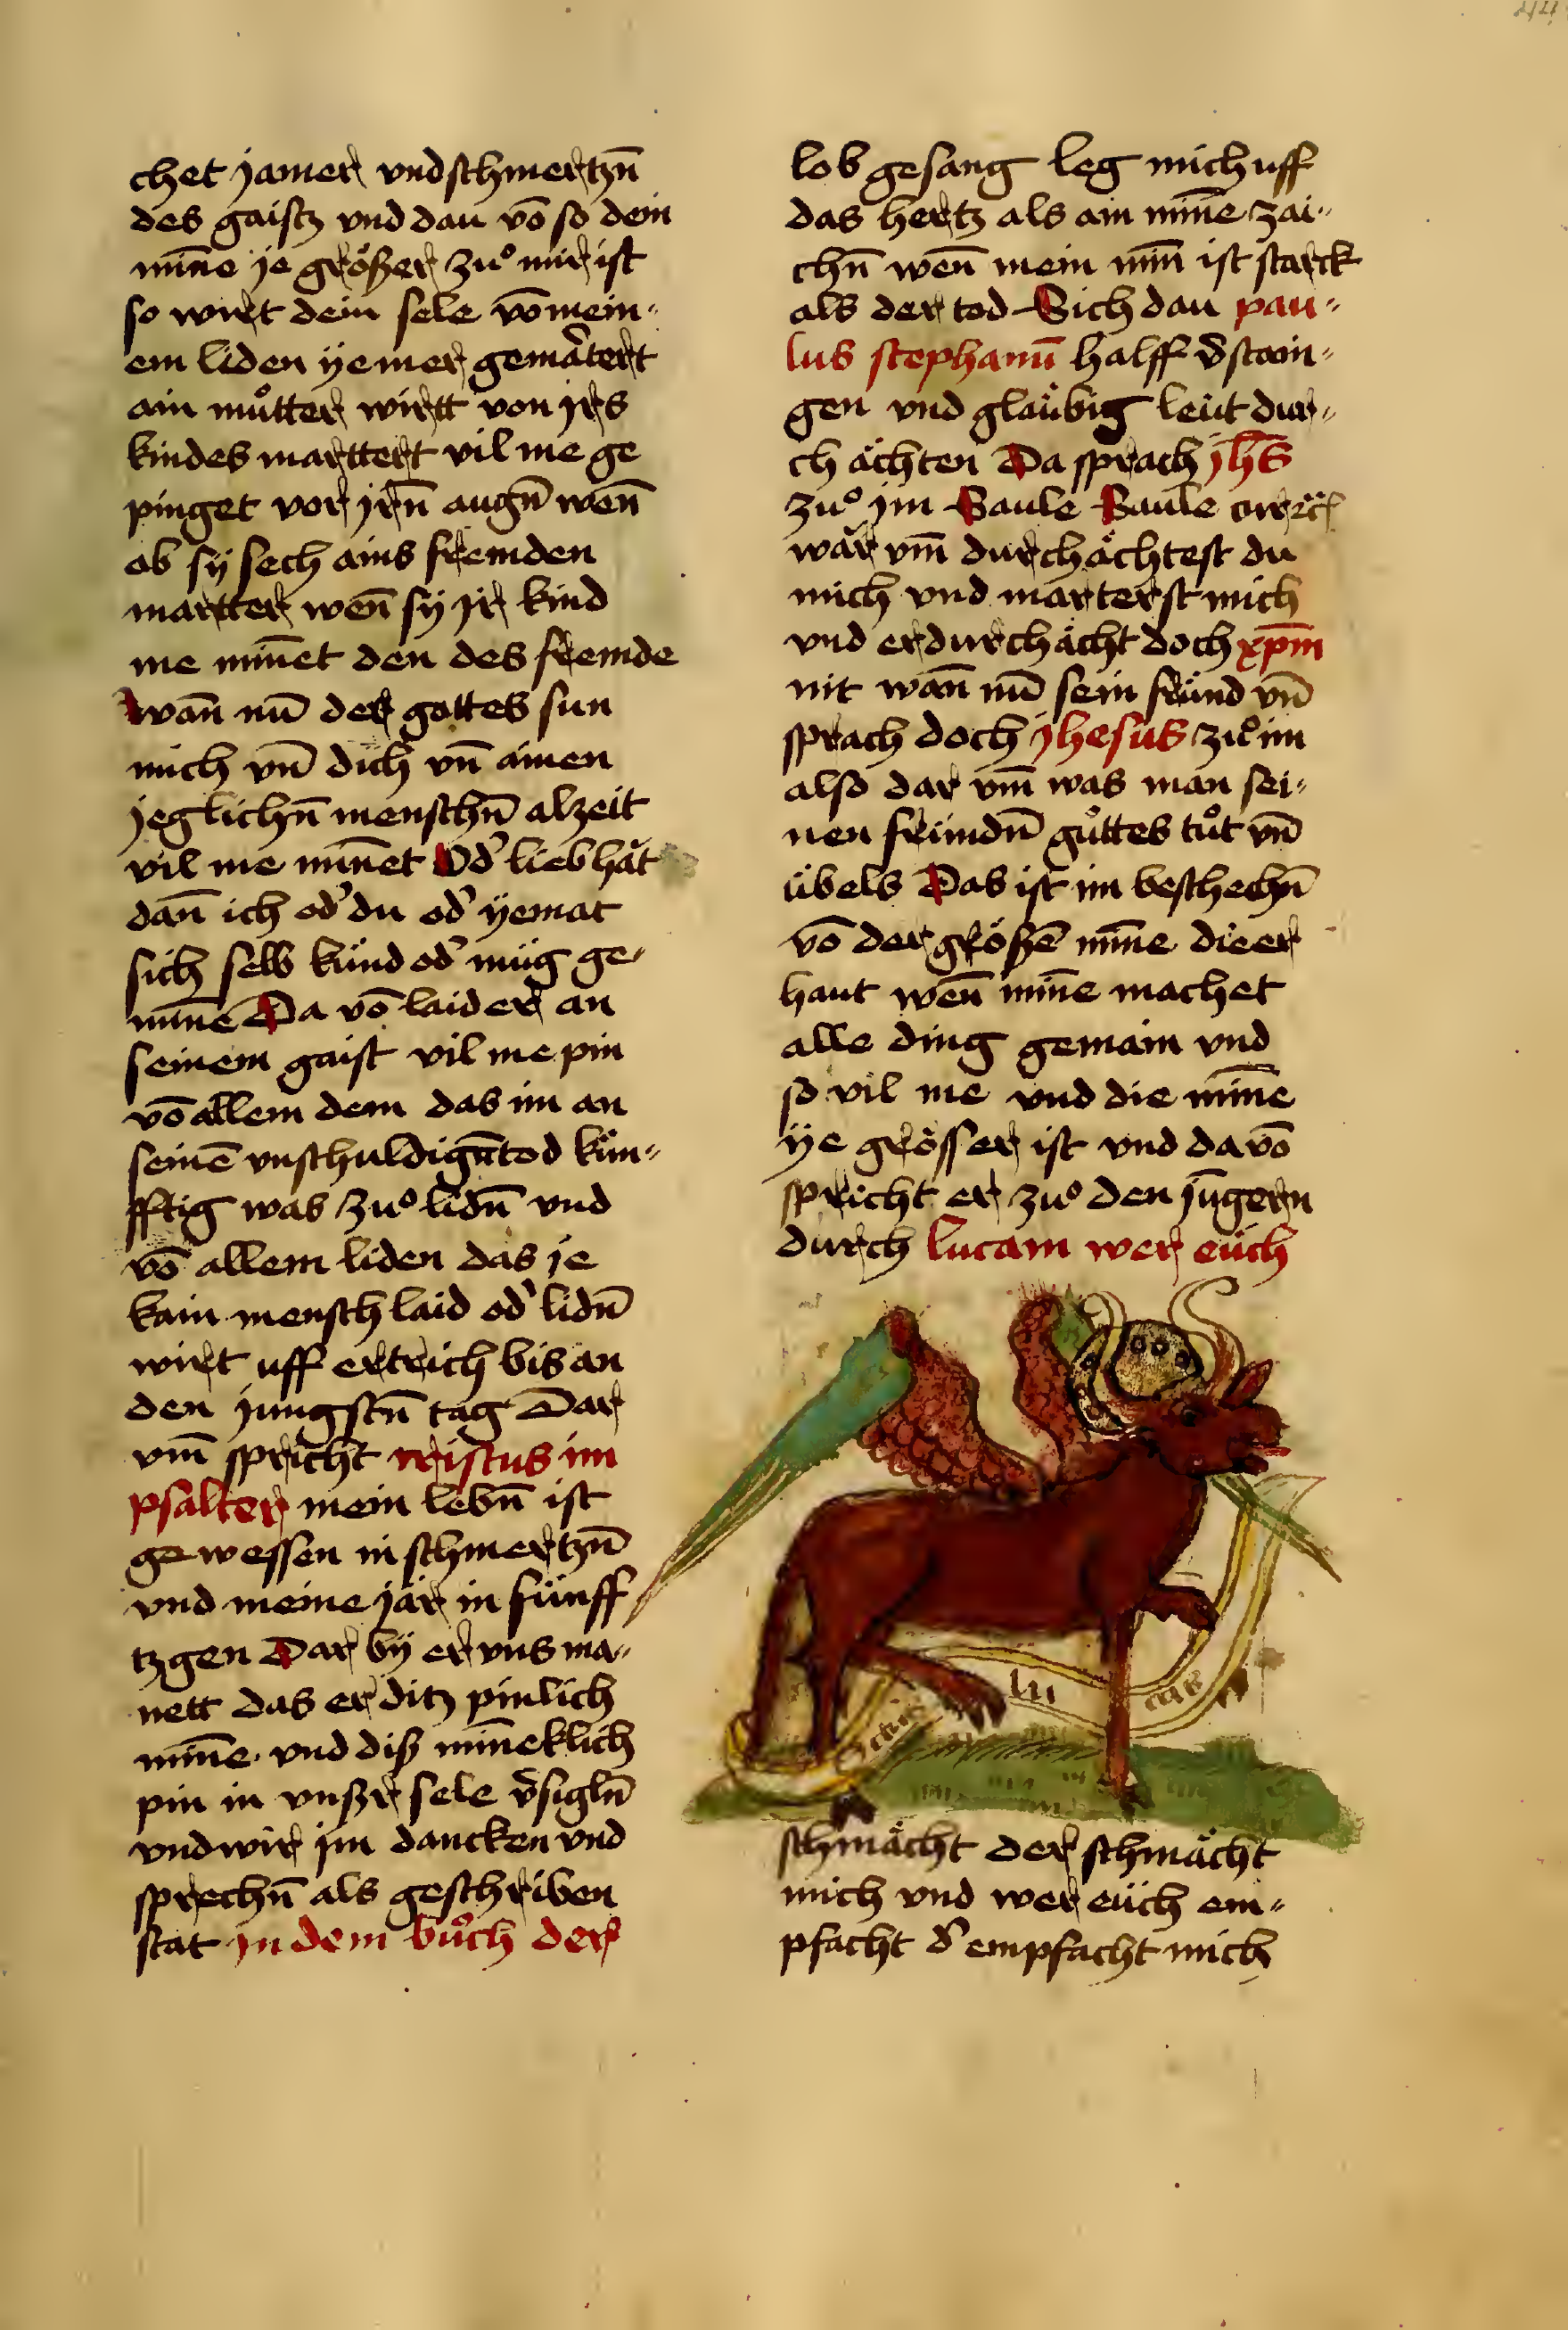 chet jamer vnd schmertzn̄
des gaistz vnd dau vō so dein
min̄e je größer zuͦ mir ist
so wirt dein sele vō mein〃
em liden ÿemer gemäˀtert
ain muͦtter wirtt von jrs
kindes marttert vil me ge
pinget vor jrn̄ augn̄ wen̄
ob sÿ sech ains fremden
martter wen̄ sÿ jr kind
me min̄et den des fremde
wan̄ nū der gottes sun
mich vn̄ dich vn̄ ainen
jeglichn̄ menschn̄ alzeit
vil me min̄et Odˀ lieb haͤt
dan̄ ich odˀ du odˀ ÿemat
sich selb künd odˀ müg ge〃
min̄e Da vō laid er an
seinem gaist vil me pin
vō allem dem das im an
seinē vnschuldign̄ tod küm〃
fftig was zuͦ lidn̄ vnd
vō allem liden das je
kain mensch laid odˀ lidn̄
wirt uff ertrich bis an
den jungstn̄ tag Dar
vm̄ spricht cristus im
psalter mein lebn̄ ist
gewessen in schmertzn̄
vnd meine jär in fünff
tzgen Dar bÿ er vns ma〃
nett das er ditz pinlich
min̄e vnd diß min̄eklich
pin in vnßr sele vˀsigln̄
vnd wir jm dancken vnd
sprechn̄ als geschriben
stat jn dem buͦch der
lob gesang leg mich uff
das hertz als ain min̄e zai〃
chn̄ wen̄ mein min̄ ist starck
als der tod Sich dau pau〃
lus stephanū halff vˀstain〃
gen vnd glaübig leüt dur〃
ch ächten Da sprach jhs̄
zuͦ jm Saule Saule
war vm̄ durchächtest du
mich vnd marterst mich
vnd er durchächt doch xpm̄
nit wan̄ nū sein fründ vn̄
sprach doch jhesus zuͦ im
also dar vm̄ was man sei〃
nen fründn̄ guͦttes tuͦt vn̄
übels Das ist im beschechn̄
vō der größē min̄e die er
haut wen̄ min̄e machet
alle ding gemain vnd
so vil me vnd die min̄e
ÿe grösser ist vnd da vō
spricht er zuͦ den jūgern
durch lucam wer eüch
lu cas
schmächt der schmächt
mich vnd wer eüch em〃
pfacht dˀ empfacht mich